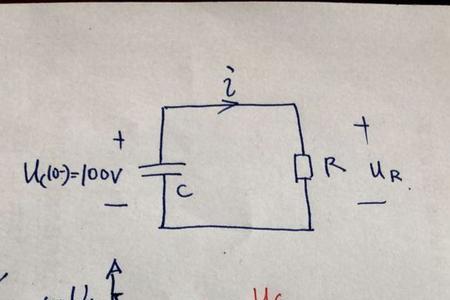 i
+ +
Uc(0-)=100V C R UR
— —
Uc